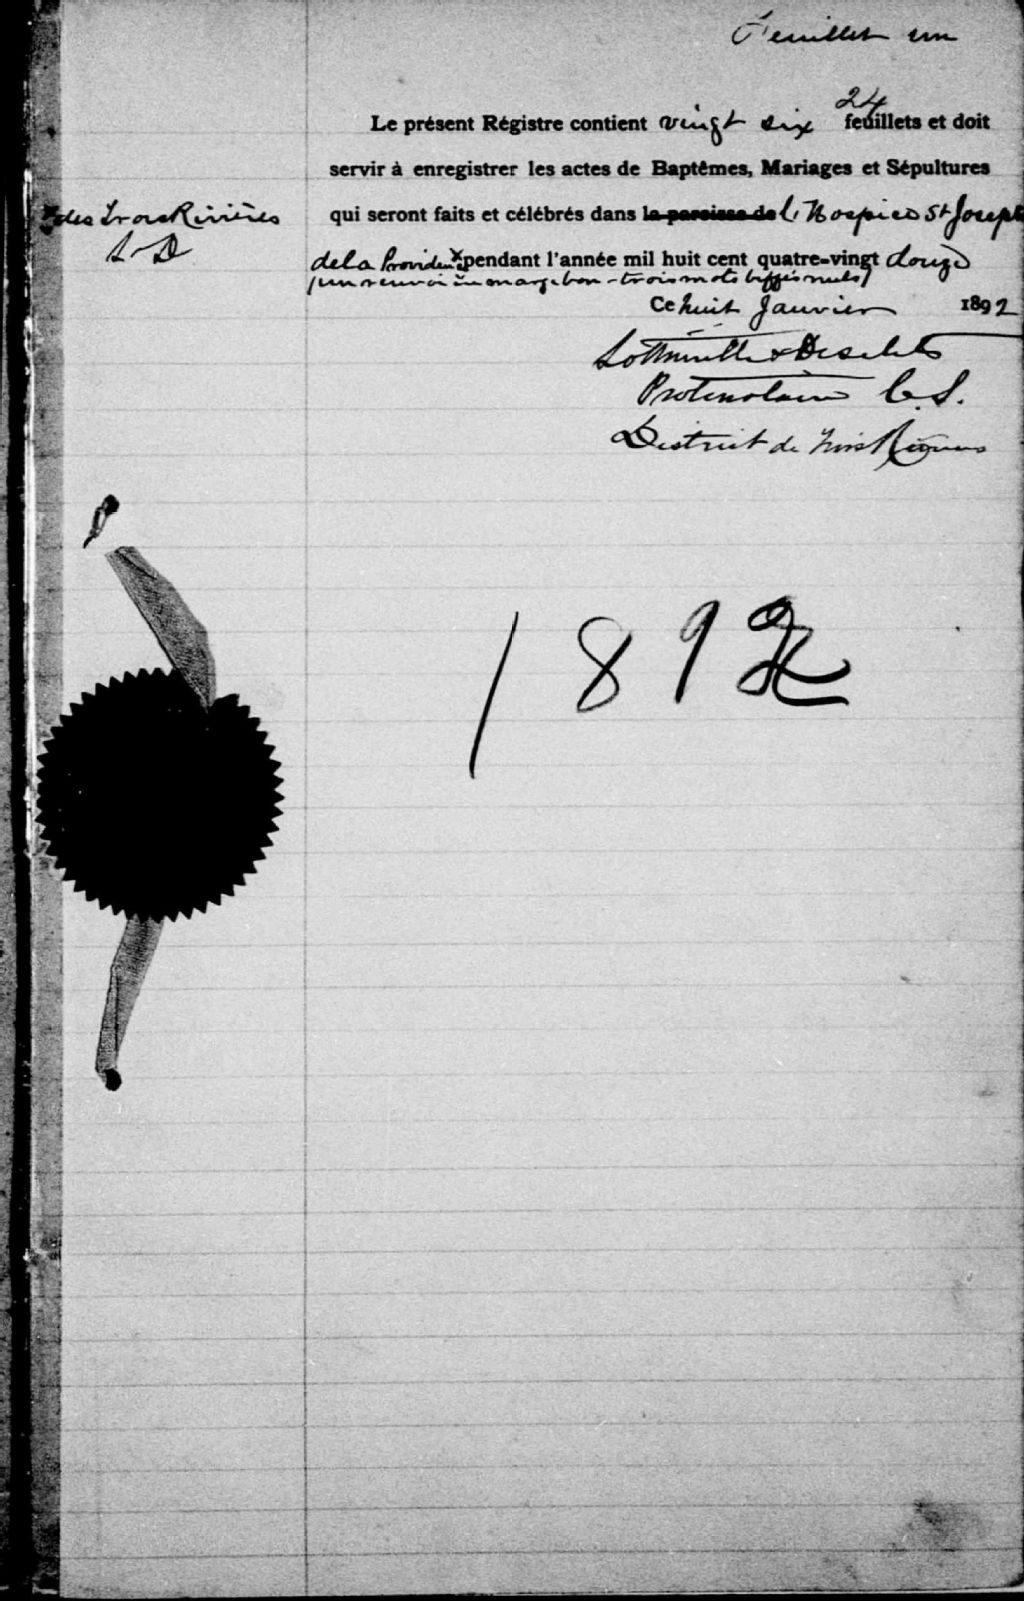 Feuillet un
24
Le présent Régistre contient vingt six feuillets et doit
servir à enregistrer les actes de Baptêmes, Mariages et Sépultures
qui seront faits et célébrés dans la paroisse de l'Hospice St Joseph
x des Trois Rivières
L & D
de la Providence x pendant l'année mil huit cent quatre-vingt douze
(un renvoi en marge bon - trois mots biffés nuls)
Ce huit Janvier 1892
Lottinville & Desilets
Protonotaire C.S.
District de Trois Rivières
1892